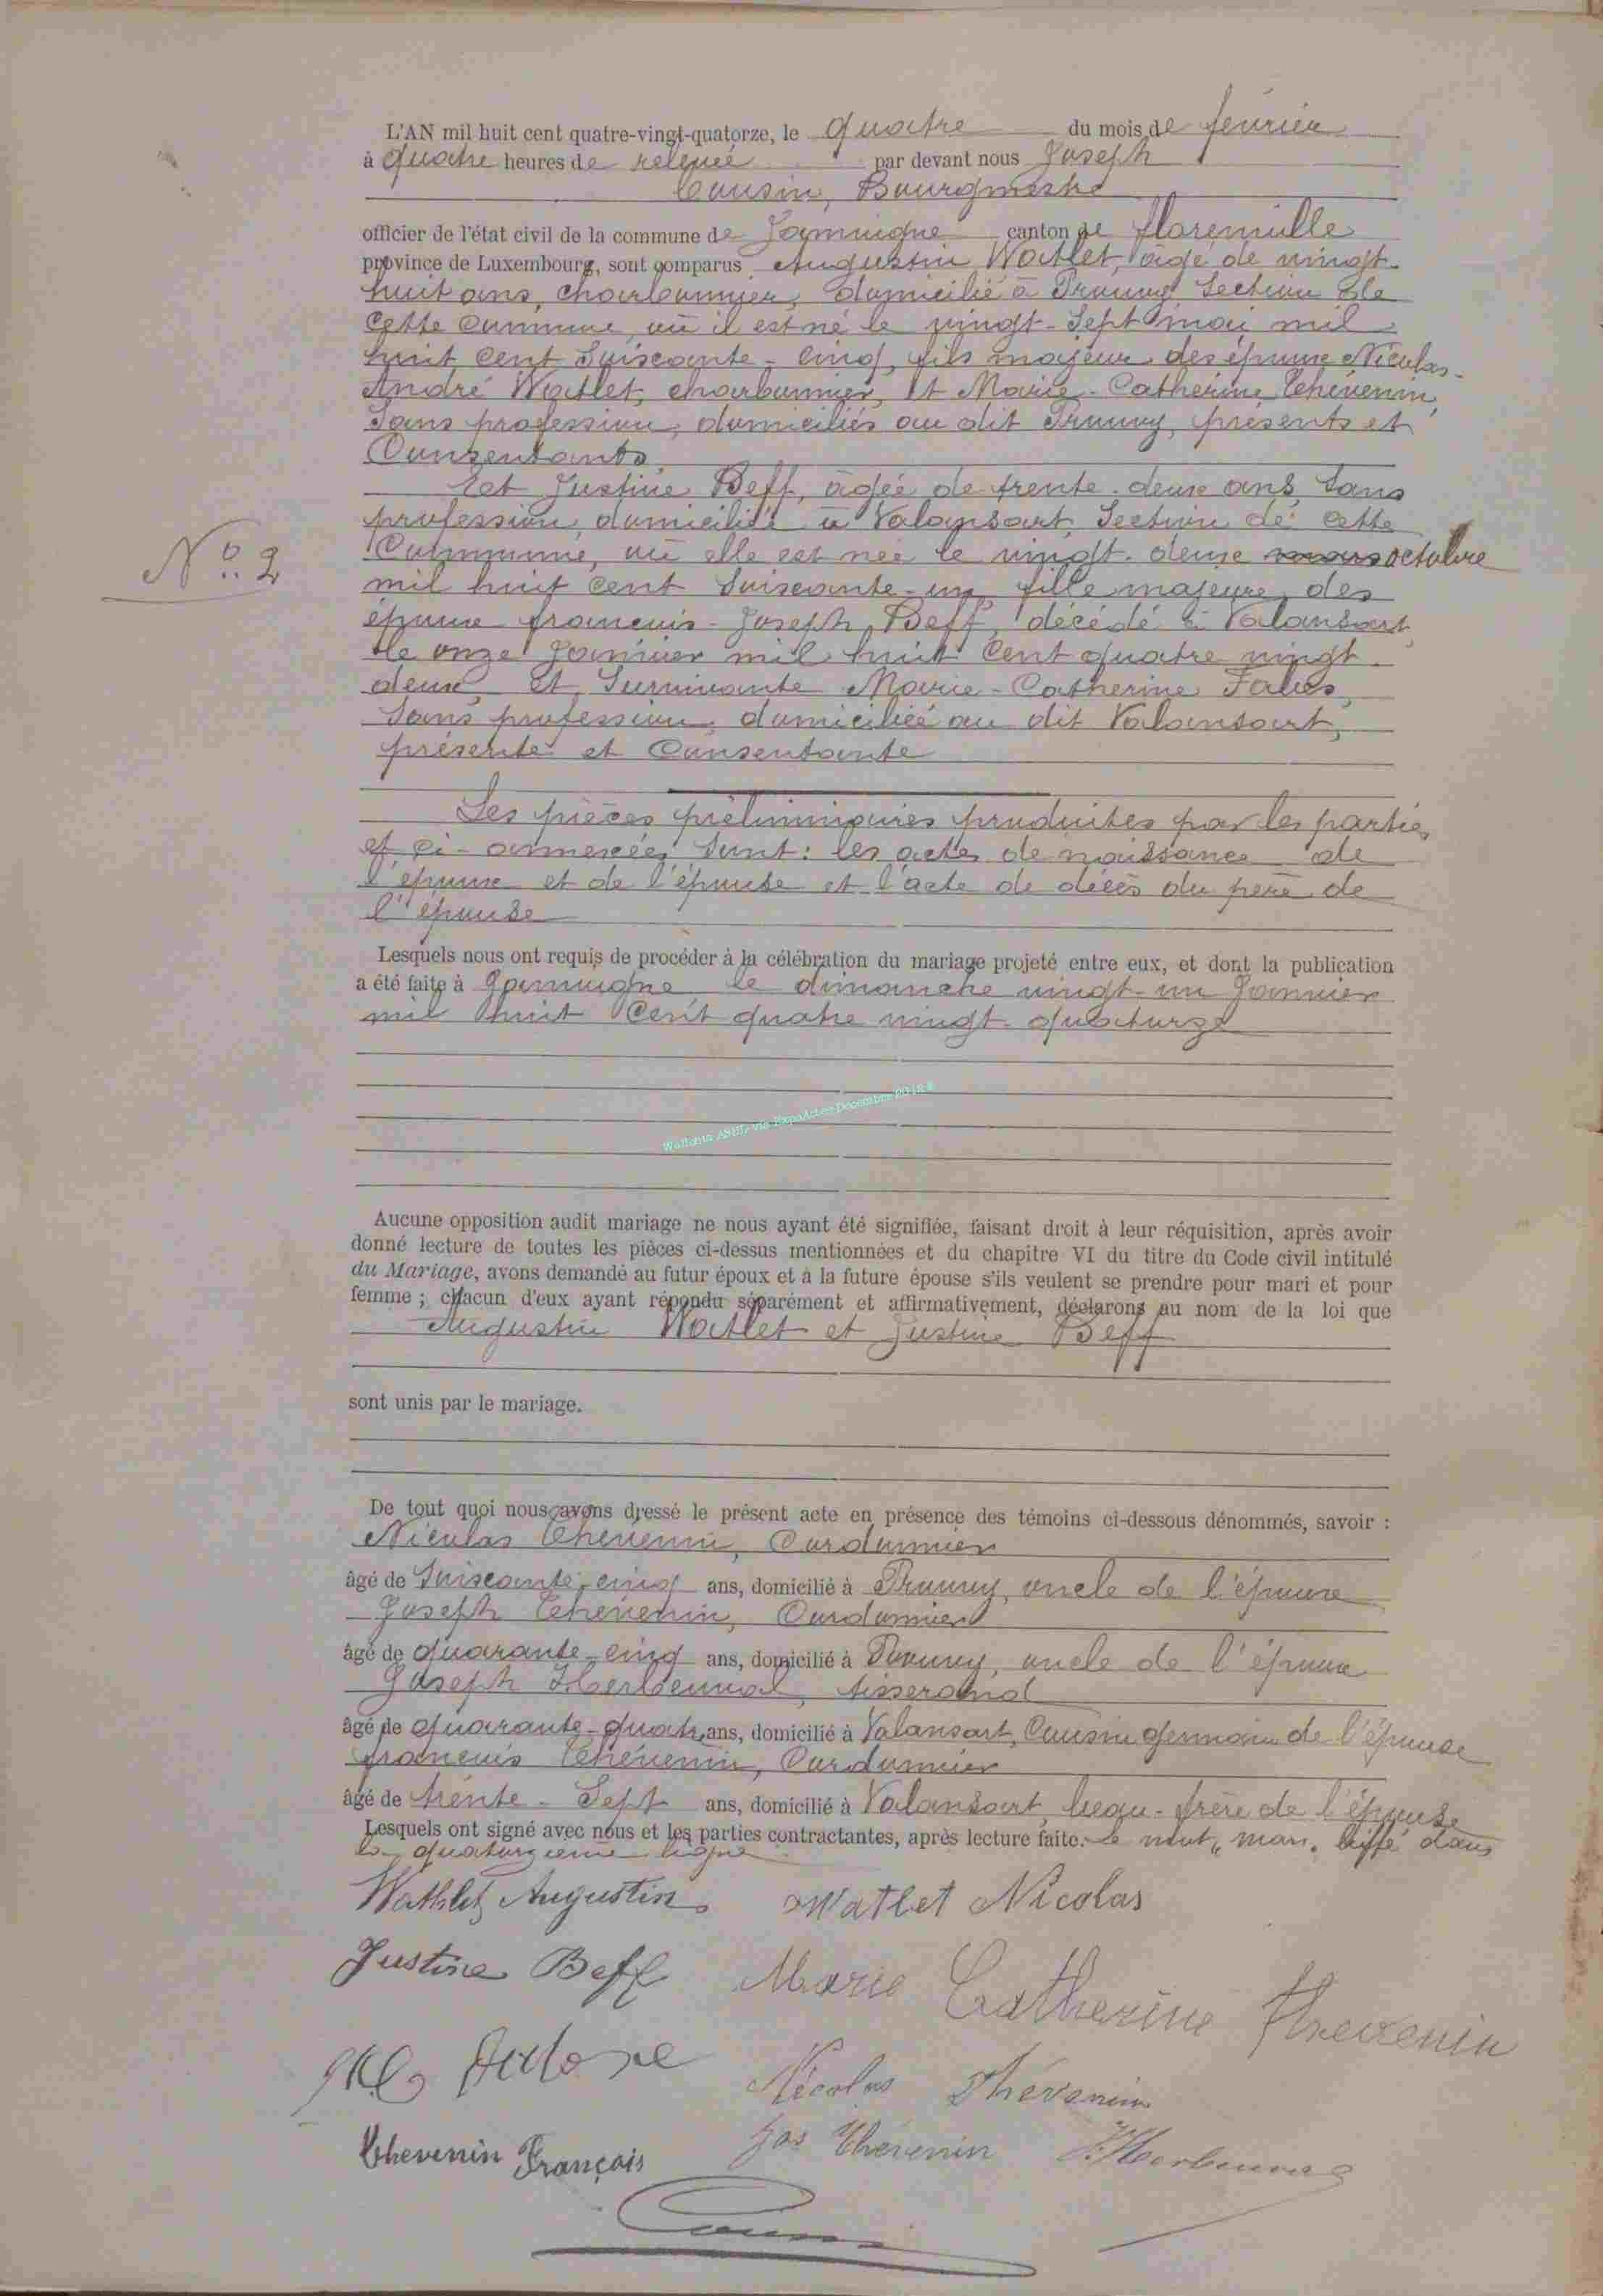 L'AN mil huit cent quatre-vingt-quatorze, le quatre du mois de février
à quatre heures de relevée par devant nous Joseph
Cousin, Bourgmestre
officier de l'état civil de la commune de Jamoigne canton de florenville
province de Luxembourg, sont comparus Augustin Watlet, âgé de vingt-
huit ans, charbonnier, domicilié à Prouvy section de
cette commune, où il est né le vingt-sept mai mil
huit cent soixante-cinq, fils majeur des époux Nicolas-
André Watlet, charbonnier, et Marie-Catherine Thévenin,
sans profession, domiciliés au dit Prouvy, présents et
Consentants.
Et Justine Beff, âgée de trente-deux ans, sans
profession, domiciliée à Valansart, section de cette
Commune, où elle est née le vingt-deux mars octobre
N° 2
mil huit cent soixante-un, fille majeure des
époux françois-Joseph Beff, décédé à Valansart,
le onze Janvier mil huit cent quatre vingt-
deux, et survivante Marie-Catherine
sans profession, domiciliée au dit Valansart,
présente et Consentante
Les pièces préliminaires produites par les parties
et ci-annexées, sont: les actes de naissance de
l'époux et de l'épouse et l'acte de décès du père de
l'épouse
Lesquels nous ont requis de procéder à la célébration du mariage projeté entre eux, et dont la publication
a été faite à Jamoigne le dimanche vingt-un Janvier
mil huit cent quatre vingt-quatorze
Wallonia ASBL via ExpoActes Décembre 2018 ©
Aucune opposition audit mariage ne nous ayant été signifiée, faisant droit à leur réquisition, après avoir
donné lecture de toutes les pièces ci-dessus mentionnées et du chapitre VI du titre du Code civil intitulé
du Mariage, avons demandé au futur époux et à la future épouse s'ils veulent se prendre pour mari et pour
femme ; chacun d'eux ayant répondu séparément et affirmativement, déclarons au nom de la loi que
Augustin Watlet et Justine Beff
sont unis par le mariage.
De tout quoi nous avons dressé le présent acte en présence des témoins ci-dessous dénommés, savoir :
Nicolas Thévenin, Cordonnier
âgé de soixante-cinq ans, domicilié à Prouvy, oncle de l'époux
Joseph Thévenin, Cordonnier
âgé de quarante-cinq ans, domicilié à Prouvy, oncle de l'époux
Joseph Herbeuval, tisserand
âgé de quarante-quatre ans, domicilié à Valansart, Cousin germain de l'épouse
françois Thévenin, Cordonnier
âgé de trente-sept ans, domicilié à Valansart, beau-frère de l'épouse
Lesquels ont signé avec nous et les parties contractantes, après lecture faite. Le mot "mars" biffé dans
la quatorzième ligne
Wathlet Augustin Watlet Nicolas
Justine Beff Marie Catherine thevenin
Nicolas Thévenin
Thevenin François Jos Thévenin J. Herbeuval
Cousin